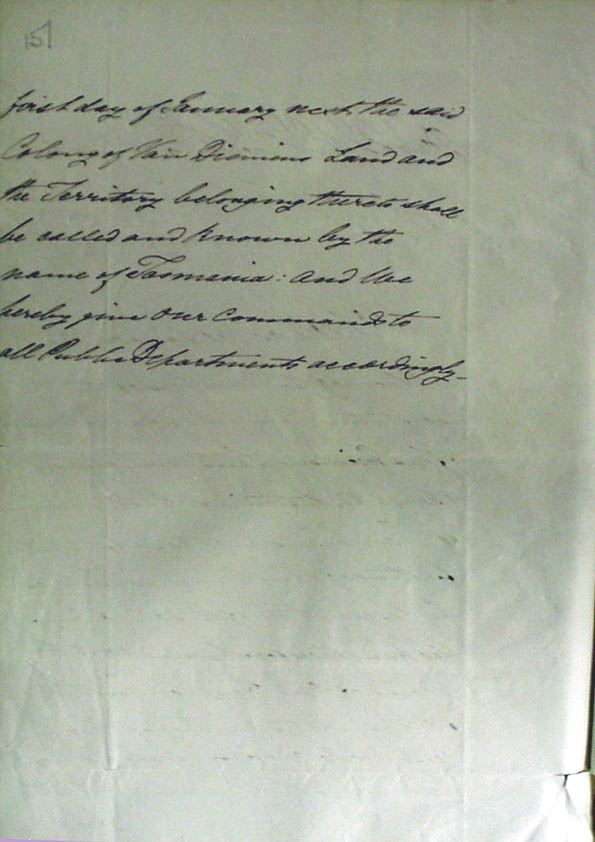 151
first day of January next, the said
Colony of Van Diemens Land and
the Territory belonging thereto shall
be called and known by the
name of Tasmania: and We
hereby give Our Commands to
all Public Departments accordingly_